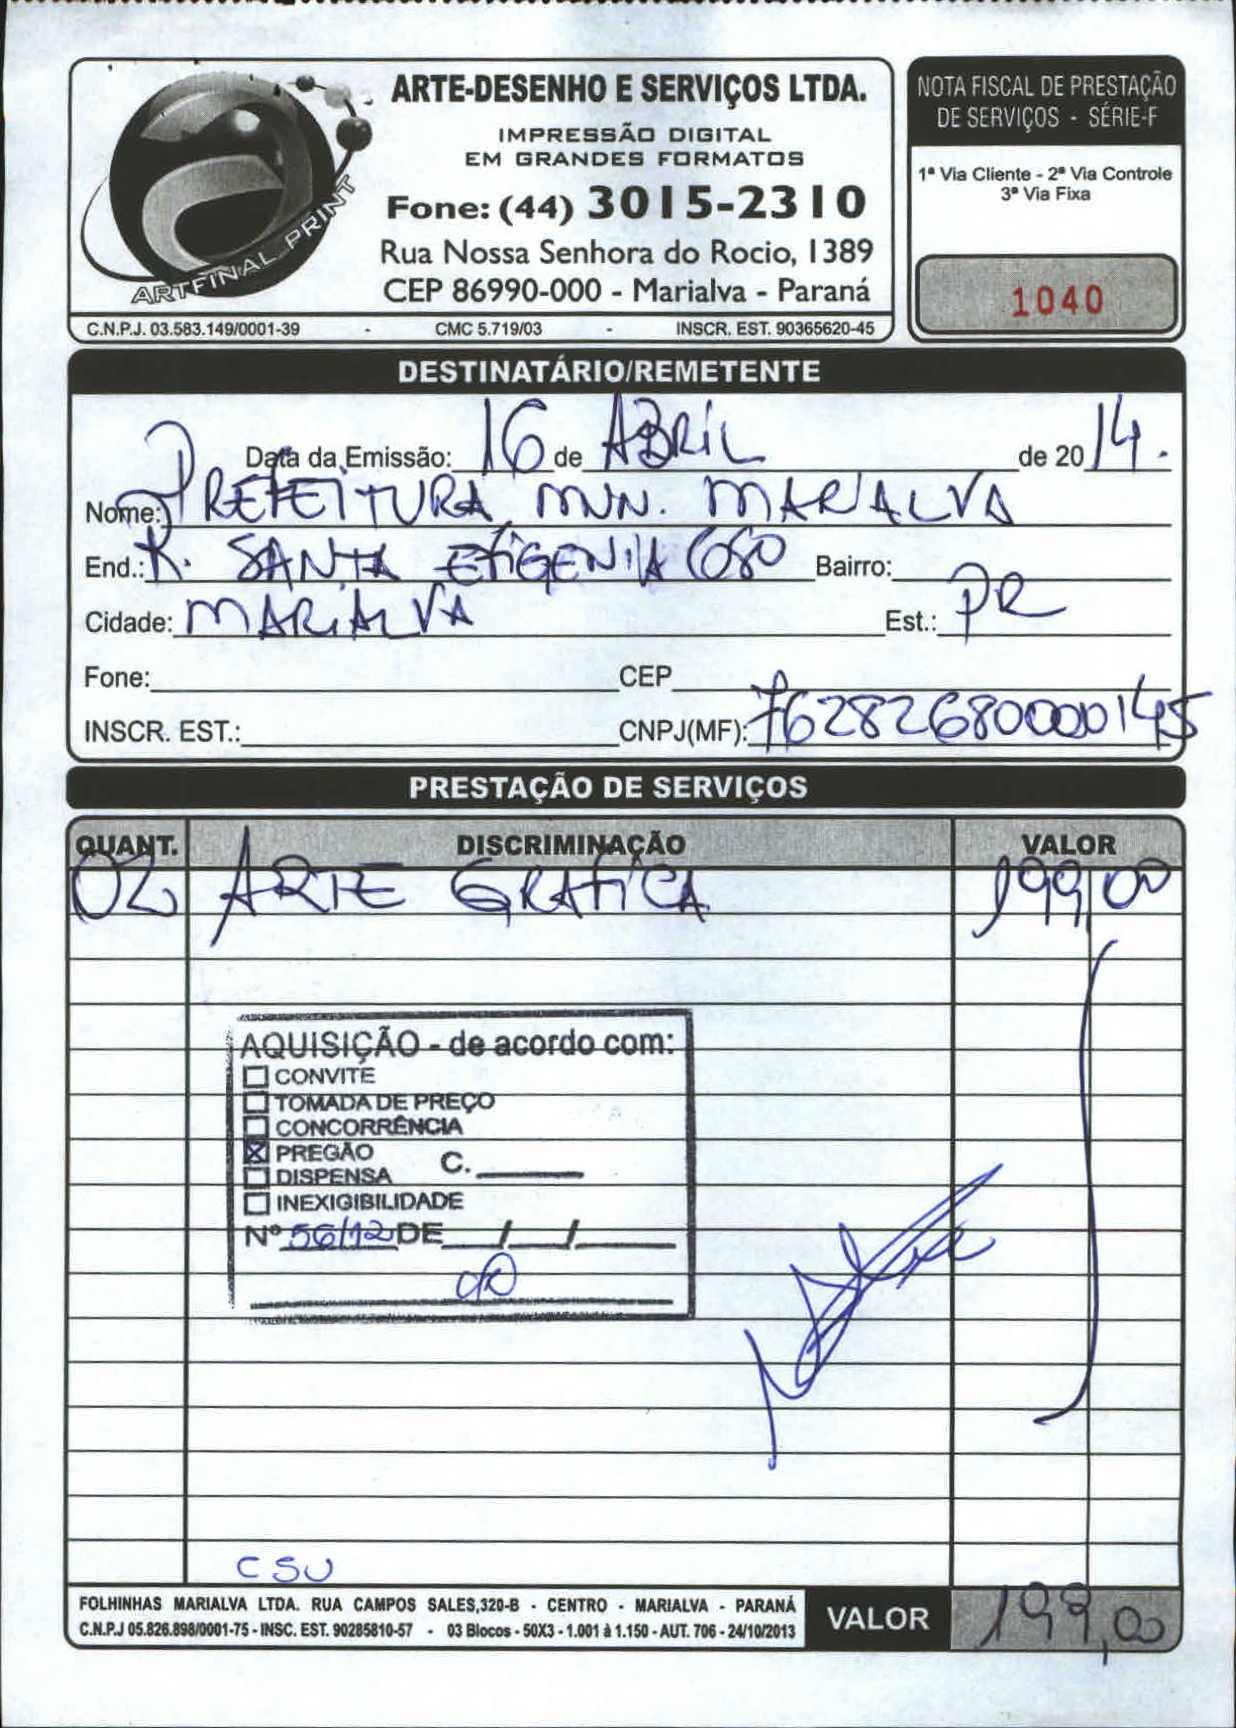 ARTFINAL PRINT
ARTE-DESENHO E SERVIÇOS LTDA.
IMPRESSÃO DIGITAL
EM GRANDES FORMATOS
Fone: (44) 3015-2310
Rua Nossa Senhora do Rocio, 1389
CEP 86990-000 - Marialva - Paraná
C.N.P.J. 03.583.149/0001-39 - CMC 5.719/03 - INSCR. EST. 90365620-45
NOTA FISCAL DE PRESTAÇÃO
DE SERVIÇOS - SÉRIE-F
1ª Via Cliente - 2ª Via Controle
3ª Via Fixa
1040
DESTINATÁRIO/REMETENTE
Data da Emissão: 16 de ABRIL de 2014.
Nome: PREFEITURA MUN. MARIALVA
End.: R. SANTA EFIGENIA 680 Bairro:
Cidade: MARIALVA Est.: PR
Fone: CEP
INSCR. EST.: CNPJ(MF): 76282680000145
PRESTAÇÃO DE SERVIÇOS
QUANT. DISCRIMINAÇÃO VALOR
02 ARTE GRAFICA 199,00
AQUISIÇÃO - de acordo com:
CONVITE
TOMADA DE PREÇO
CONCORRÊNCIA
PREGÃO C.
DISPENSA
INEXIGIBILIDADE
Nº 56/12 DE / /
CSU
FOLHINHAS MARIALVA LTDA. RUA CAMPOS SALES,320-B - CENTRO - MARIALVA - PARANÁ
C.N.P.J 05.826.898/0001-75 - INSC. EST. 90285810-57 - 03 Blocos - 50X3 - 1.001 à 1.150 - AUT. 706 - 24/10/2013
VALOR 199,00